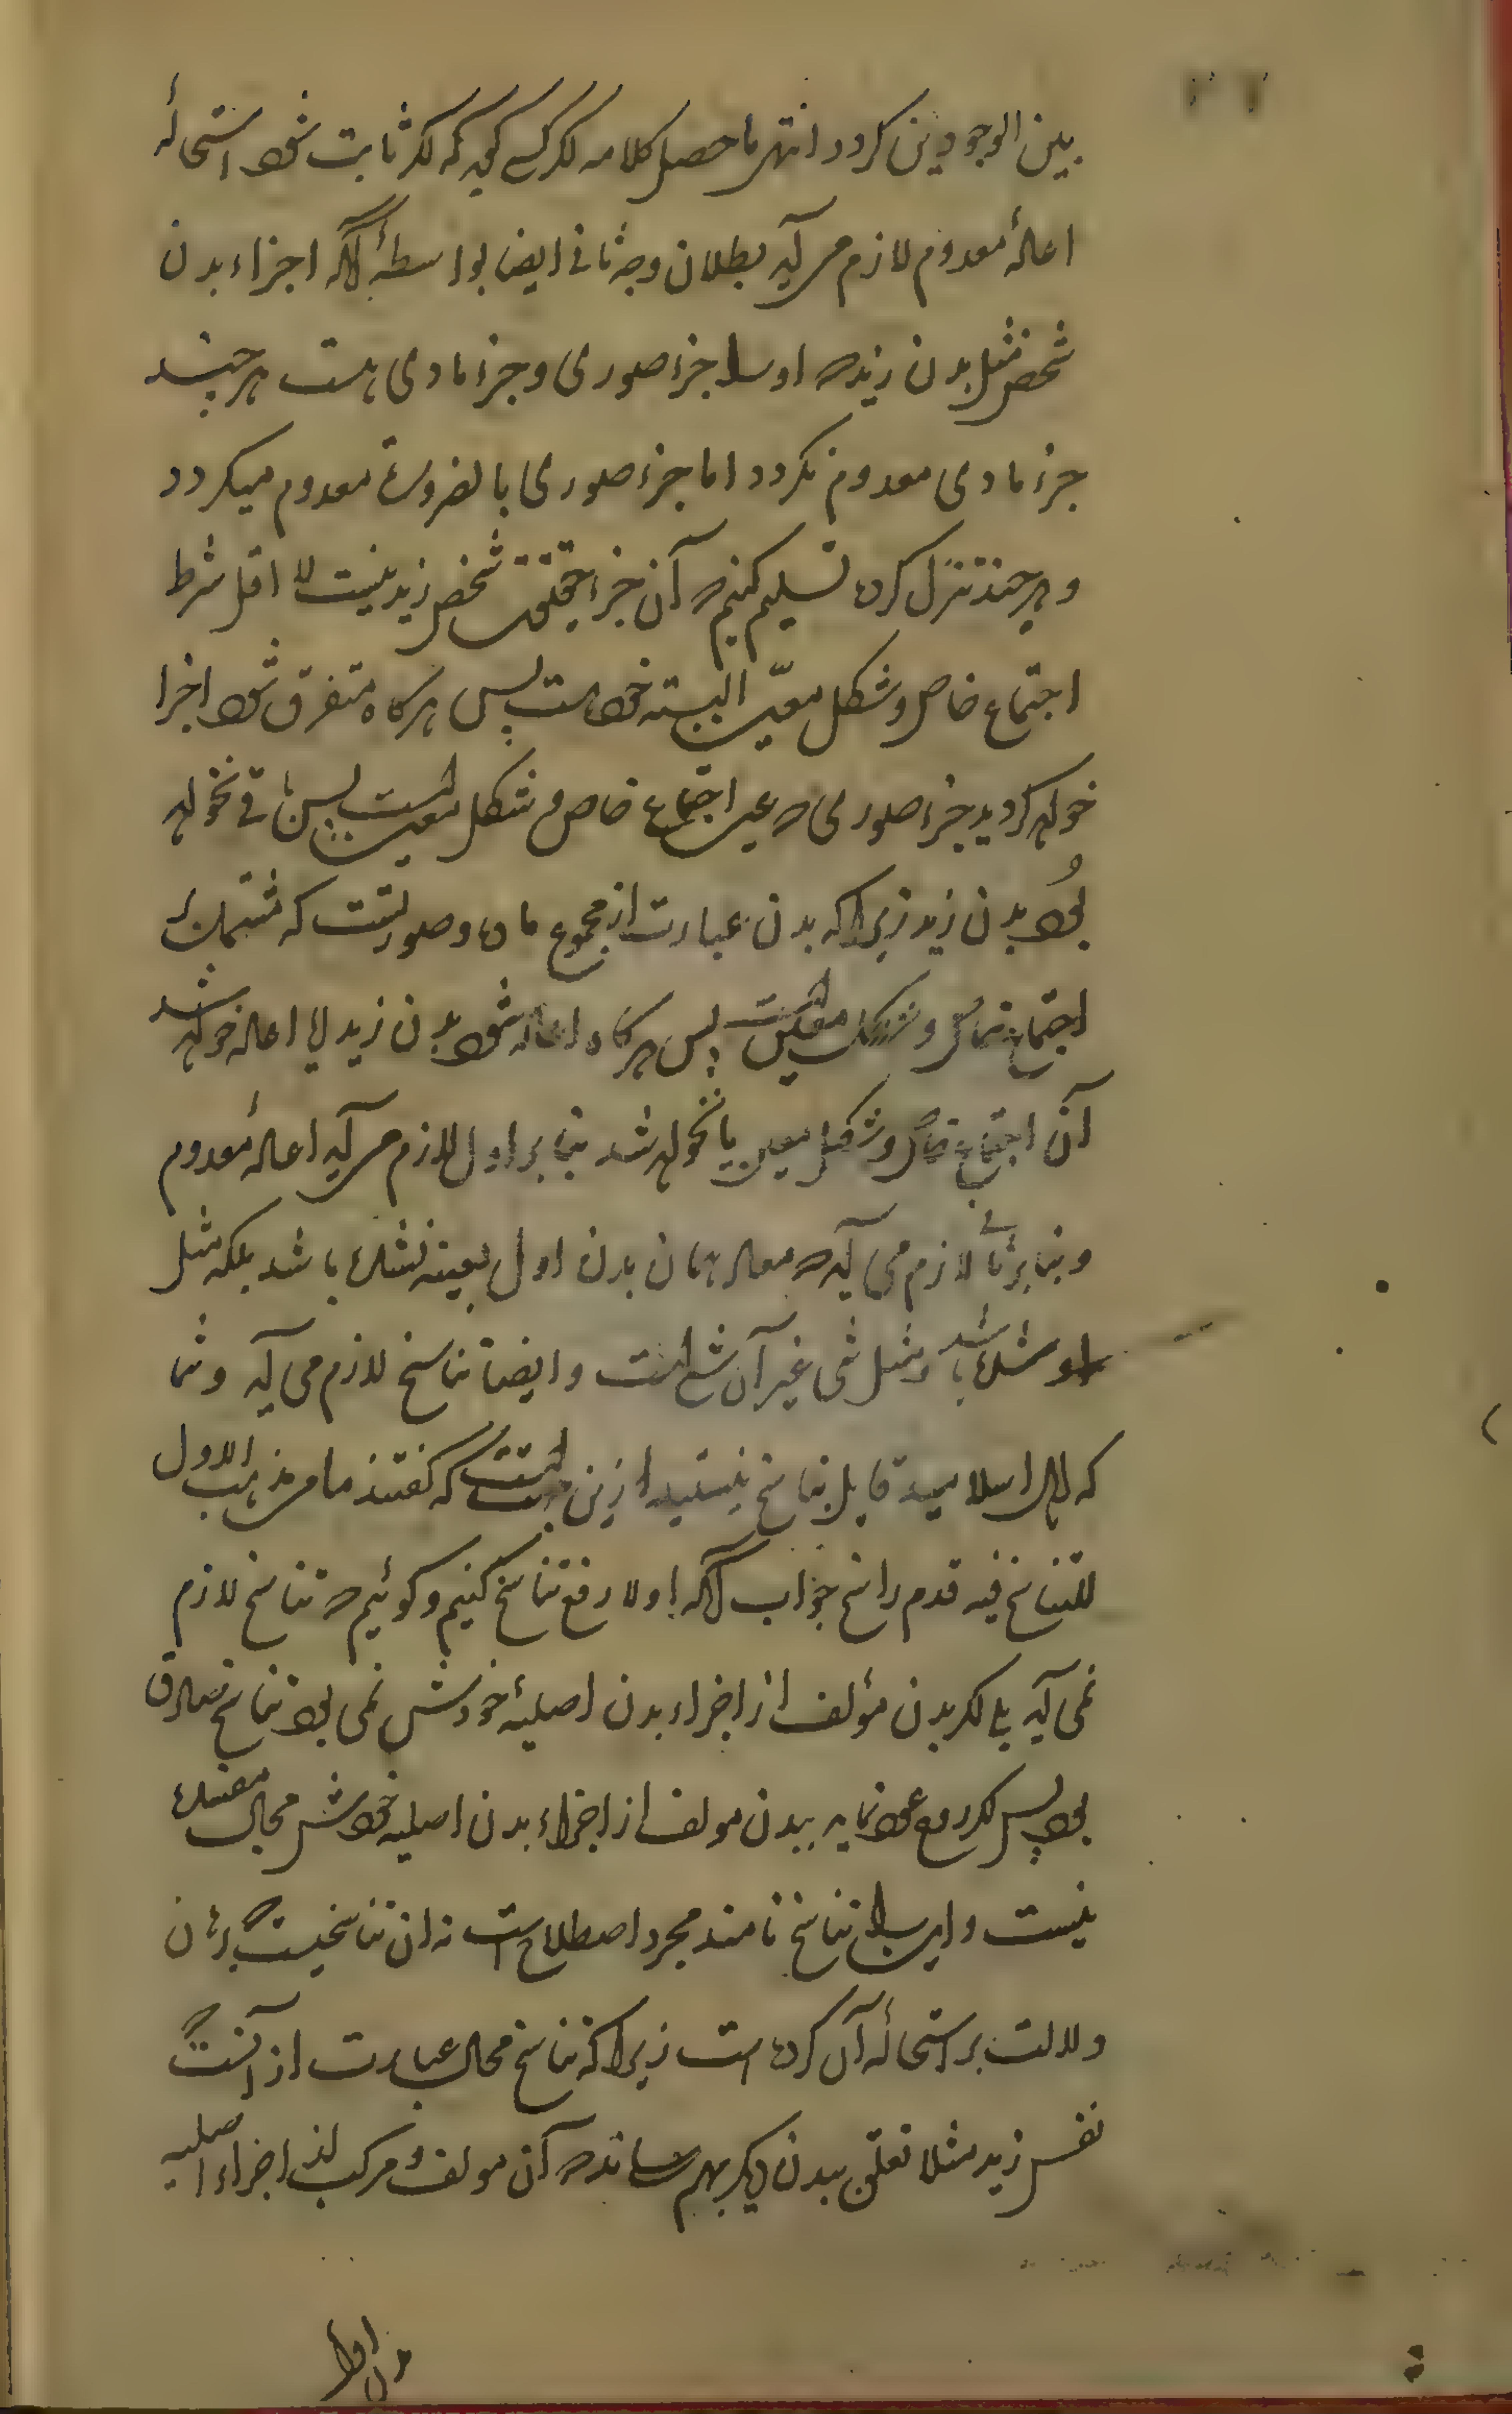 بین الوجودین کردد انتهر ماحصل کلامه اکر کسی کوید که اکر ثابت شود استحالهٔ
اعادهٔ معدوم لازم می آید بطلان وجه ثانی ایضا بواسطهٔ آنکه اجزاء بدن
شخص مثل بدن زید که او را جزء صوری و جزء مادی هست هر چند
جزء مادی معدوم نکردد اما جزء صوری بالضرورة معدوم میکردد
و هرچند تنزل کرده تسلیم کنیم که آن جزء حقیقت شخص زید نیست لا اقل شرط
اجتماع خاص و شکل معیّن البته خواهد پس هرکاه متفرق شود اجزا
خواهد کردید جزء صوری که عین اجتماع خاص و شکل معین است پس باقی نخواهد
بُود بدن زید زیراکه بدن عبارت از مجموع ماده و صورتست که مشتمل
اجتماع خاص و شکل معین است پس هرکاه اعاده شود بدن زید یا اعاده خواهد شد
آن اجتماع خاص و شکل معین یا نخواهد شد بنا بر اول لازم می آید اعادهٔ معدوم
و بنا بر ثانی لازم می آید که معاد همان بدن اول بعینه نشده باشد بلکه مثل
او شده باشد و مثل شی غیر آن شی است و ایضا تناسخ لازم می آید و شما
که اهل اسلامید قایل بتناسخ نیستید ازین جهتست که گفتند ما من مذهب الا ول
للتناسخ فیه قدم راسخ جواب آنکه اولا رفع تناسخ کنیم و کوئیم که تناسخ لازم
نمی آید بلی اکر بدن مؤلف از اجزاء بدن اصلیهٔ خودش نمی بود تناسخ صادق
بود پس اکر روح عود نماید ببدن مولف از اجزاء بدن اصلیه خودش محال
نیست و این را تناسخ نامند مجرد اصطلاح است نه ان تناسخیست که برهان
دلالت بر استحالهٔ آن کرده است زیراکه تناسخ محال عبارت از آنست که
نفس زید مثلا تعلق ببدن دیکر بهم رساند که آن مولف و مرکب از اجزاء اصلیه